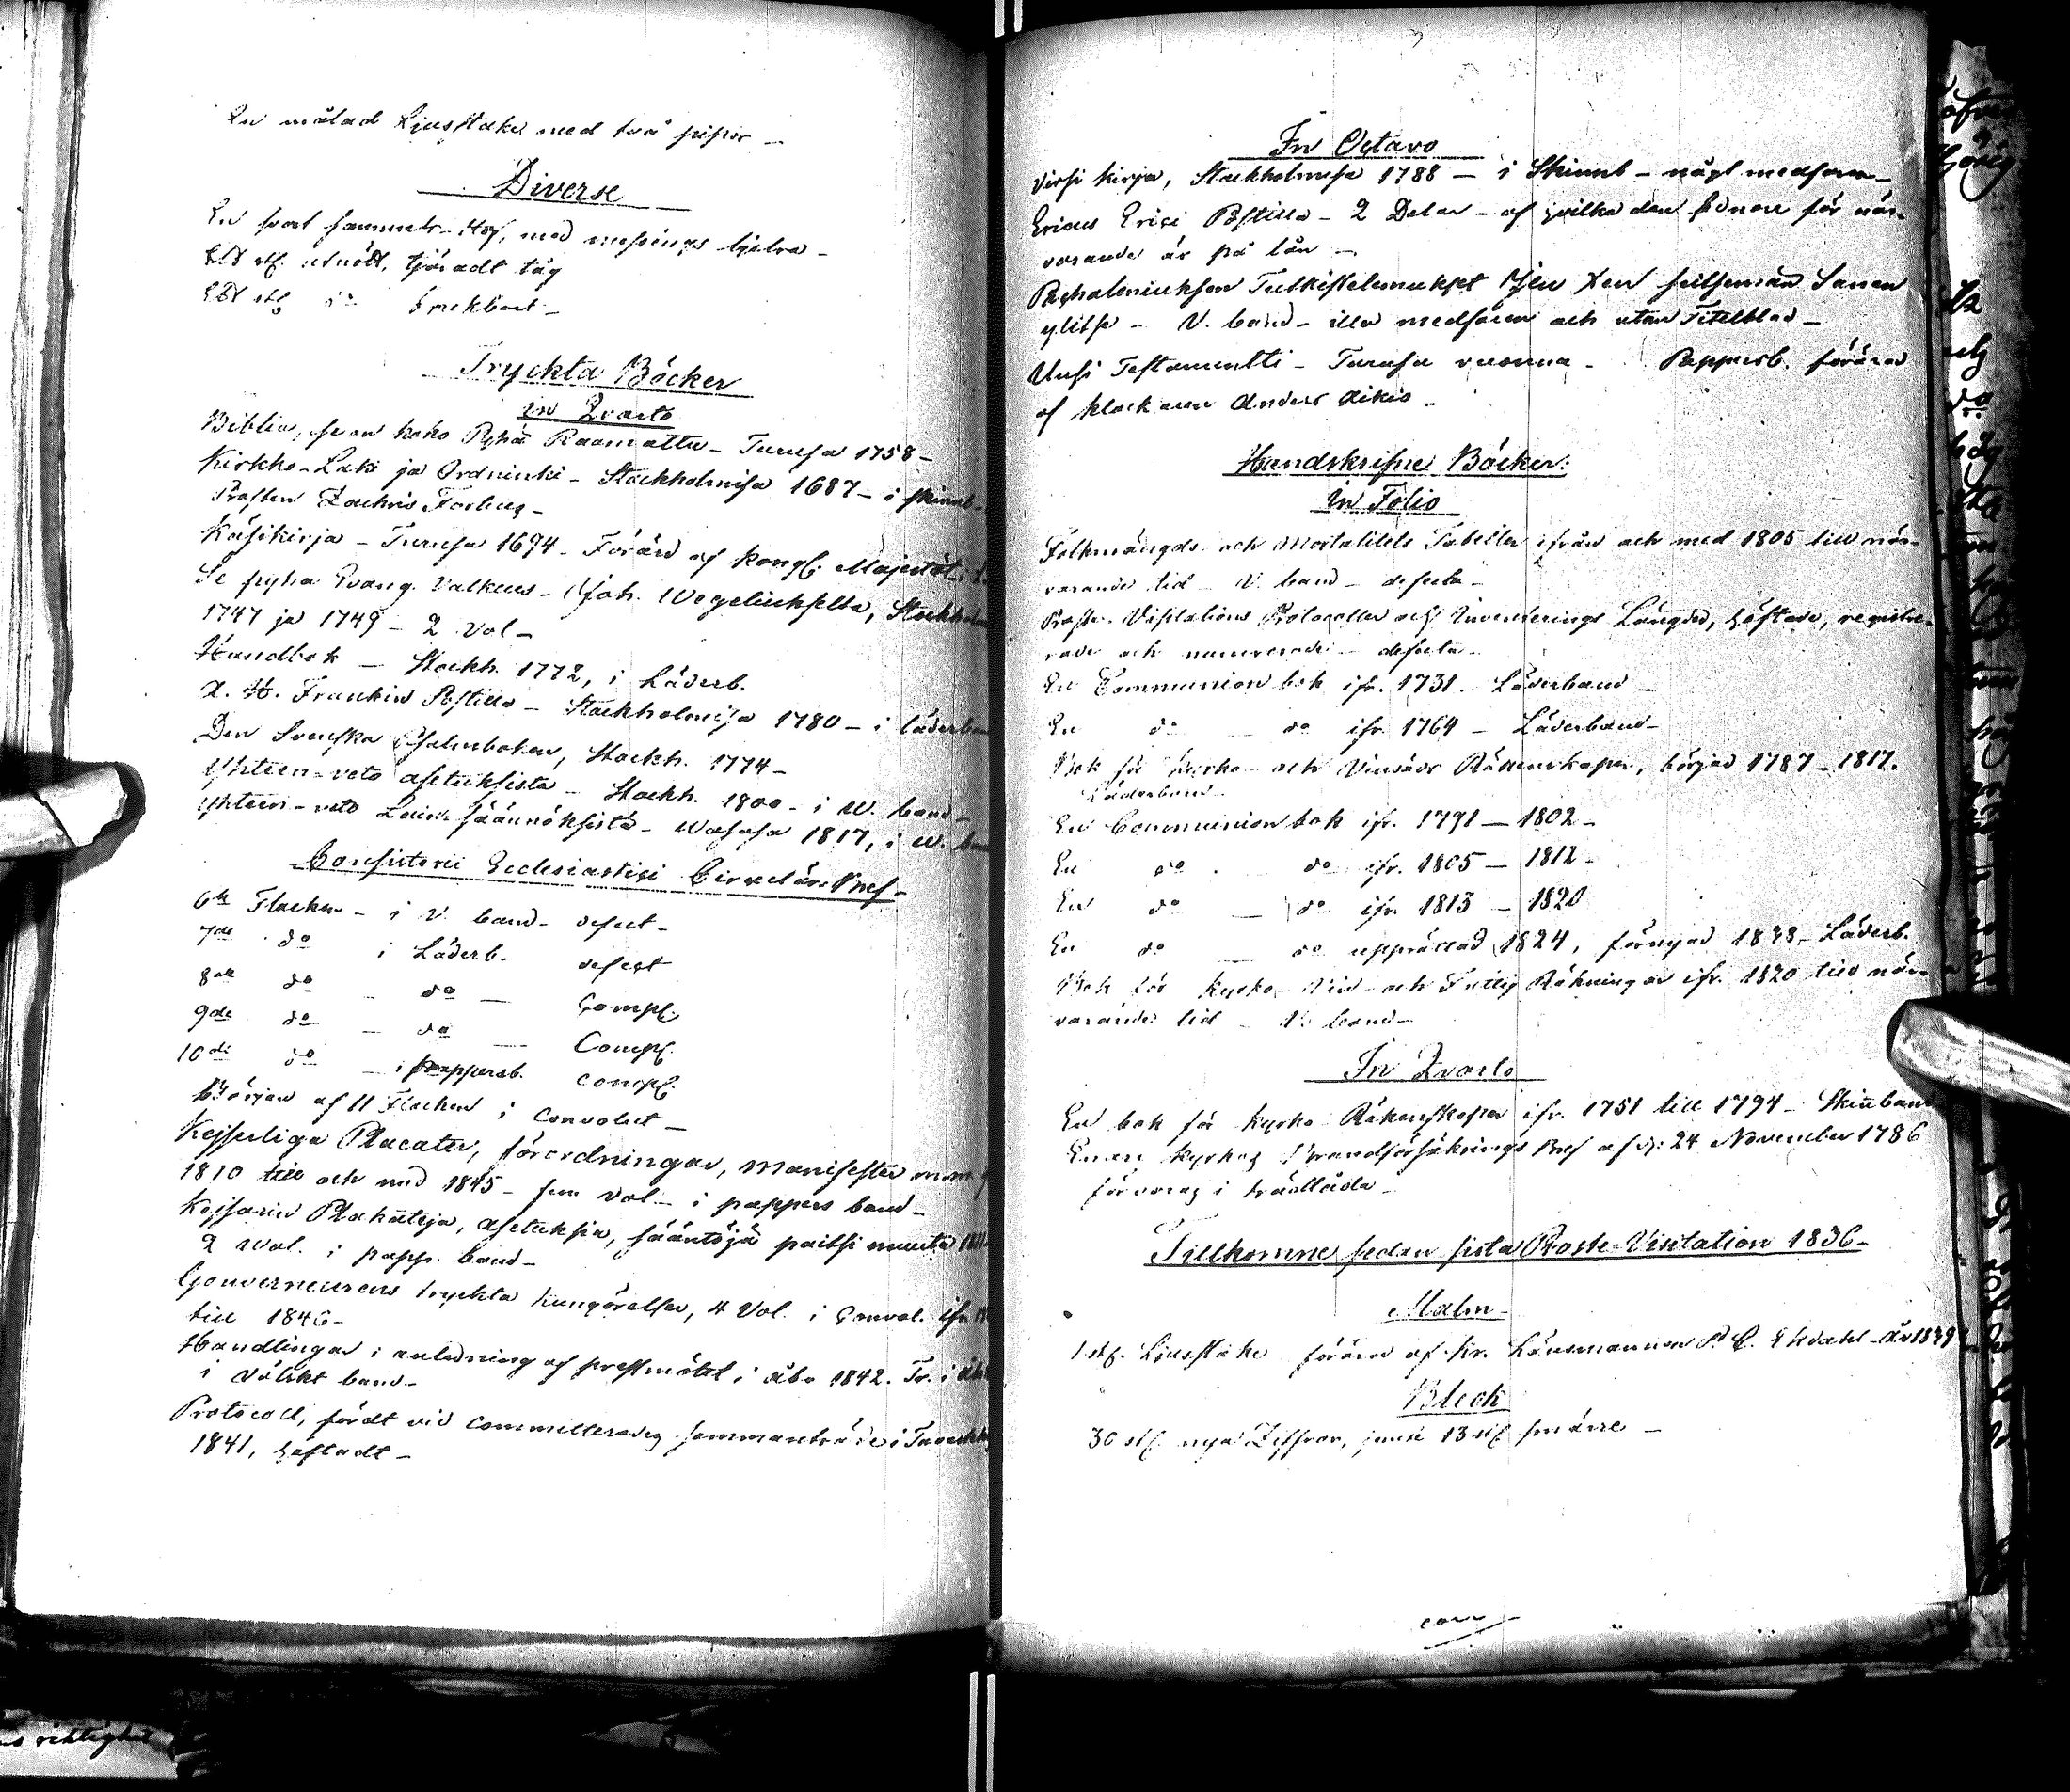 En målad Ljusstake med två pipor –
Diverse
En svart sammets Håf, med messings bjelra –
Ett st. utnött, tjäradt tåg
Ett st. do
Tryckta Böcker
in Qvarto
Biblia, se on koko Pyhä Raamattu – Turussa 1758 –
Kirkko-Laki ja Ordninki – Stockholmissa 1687 – i skinnb –
Prosten Zachris Forbus –
Käsikirja – Turussa 1694 – Förärad af Kongl. Majestät
Se pyhä Evang. Valkeus – Joh. Wegeliukselta, Stockholm
1747 ja 1749 – 2 Vol –
Handbok – Stockh. 1772, i Läderb.
A. H. Frankin Postilla – Stockholmissa 1780 – i läderban
Den Svenska Psalmboken, Stockh. 1774 –
Yhteen-veto asetuksista – Stockh. 1800 – i W. band –
Yhteen-veto Lain säännöksistä – Wasasa 1817, i W. ban
Consistorii Ecclesiastici Circulär Bref –
6te Flocken – i V. band – defect –
7de do i Läderb. defect
8de do – do – Compl.
9de do – do – Compl.
10de do – i pappersb. Compl.
Början af 11 Flocken i Convolut –
Kejserliga Placater, förordningar, manifester m. m.
1810 till och med 1845 – fem Vol – i pappers band –
Kejsarin Plakateja, asetuksia, sääntöjä paitsi muuta
2 Vol. i papp. band –
Gouverneurens tryckta kungörelser, 4 Vol. i Convol. ifr.
till 1846 –
Handlingar i anledning af prestmötet i Åbo 1842. Tr. i Åbo
i Vålskt band –
Protocoll, fördt vid Committerades sammanträde i
1841, häftadt –
In Octavo
Virsi Kirja, Stockholmissa 1788 – i Skinnb – något medfaren –
Ericus Erici Postilla – 2 Delar – af hvilka den sednare för när-
varande är på lån –
ylitse – V. band – illa medfaren och utan Titelblad –
Uusi Testamentti – Turussa vuonna – Pappersb. föräras
af klockaren Anders Aikio –
Handskrifne Böcker:
in Folio
Folkmängds och Mortalitets Tabeller ifrån och med 1805 till när-
varande tid – V. band – defecta –
Proste-Visitations Protocoller och Inventerings Längder, häftade, registre-
rade och numererade – defecta –
En Communion bok ifr. 1731. Läderband –
En do – do ifr. 1764 – Läderband –
Bok för Kyrko och Vinsäds Räkenskaper, börjad 1787 – 1817.
Läderband –
En Communion bok ifr. 1791 – 1802 –
En do – do ifr. 1805 – 1812 –
En do – do ifr. 1813 – 1820
En do – do upprättad 1824, förnyad 1838 – Läderb.
Bok för Kyrko- Vin- och Fattig Räkningar ifr. 1820 till när-
varande tid – V. band –
In Qvarto
En bok för Kyrko Räkenskaper ifr. 1751 till 1794 – Skinband
Kyrkas Brandförsäkrings Bref af d: 24 November 1786
förvaras i trädlåda –
Tillkomne sedan sista Proste-Visitation 1836 –
Malm –
1 st. Ljusstake föräras af Hr. Länsmannen P. C. Ekdahl – År 1839
Bleck
30 st. nya Ziffror, jemte 13 st. smärre –